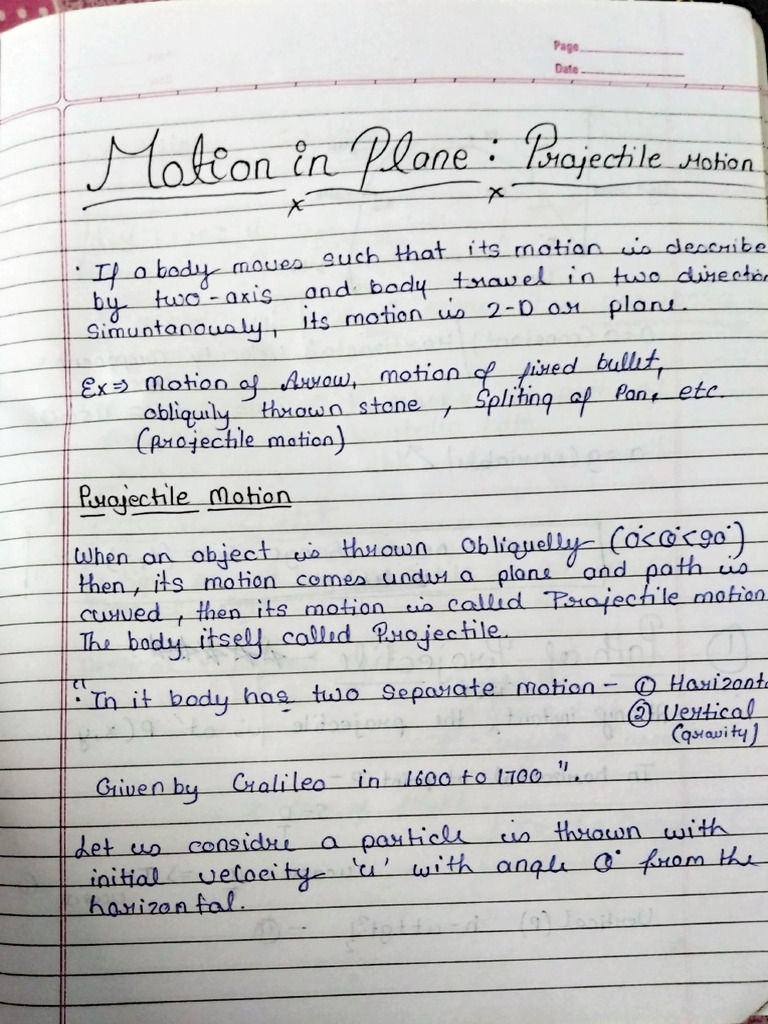 Page
Date
Motion in Plane : Projectile Motion
x x
· If a body moves such that its motion is describe
by two-axis and body travel in two direction
Simuntanously, its motion is 2-D or plane.
Ex⇒ Motion of Arrow, motion of fired bullet,
obliquily thrown stone, Spliting of Pan, etc.
(projectile motion)
Projectile Motion
When an object is thrown Obliquelly (0°<θ°<90°)
then, its motion comes under a plane and path is
curved, then its motion is called Projectile motion
The body itself called Projectile.
"· In it body has two separate motion - ① Horizonta
② Vertical
(gravity)
Given by Galileo in 1600 to 1700 ".
Let us considre a particle is thrown with
initial velocity 'u' with angle θ° from the
horizontal.